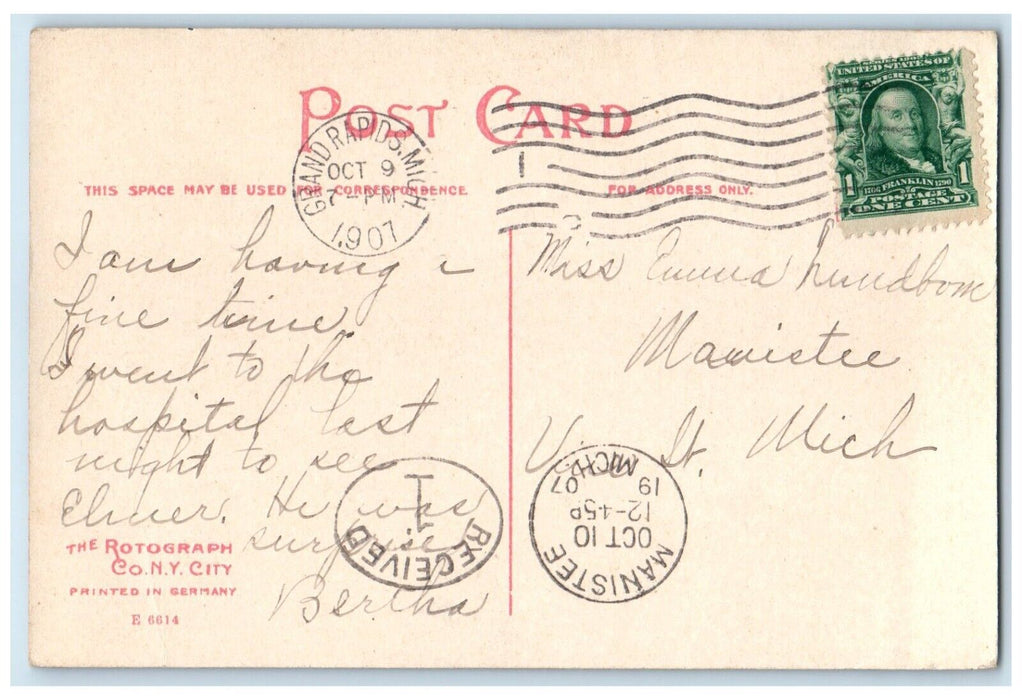 POST CARD
THIS SPACE MAY BE USED FOR CORRESPONDENCE
FOR ADDRESS ONLY.
GRAND RAPIDS, MICH.
OCT 9
7-PM
1907
1
SERIES 1902
UNITED STATES OF
AMERICA
1706 FRANKLIN 1790
POSTAGE
ONE CENT
1 1
I am having a
fine time.
I went to the
hospital last
night to see
Elmer. He was
surprise
Bertha
Miss Emma Lundbom
Manistee
V. St. Mich
RECEIVED
1
MANISTEE
OCT 10
12-45P
19 07
MICH.
THE ROTOGRAPH
CO. N.Y. CITY
PRINTED IN GERMANY
E 6614